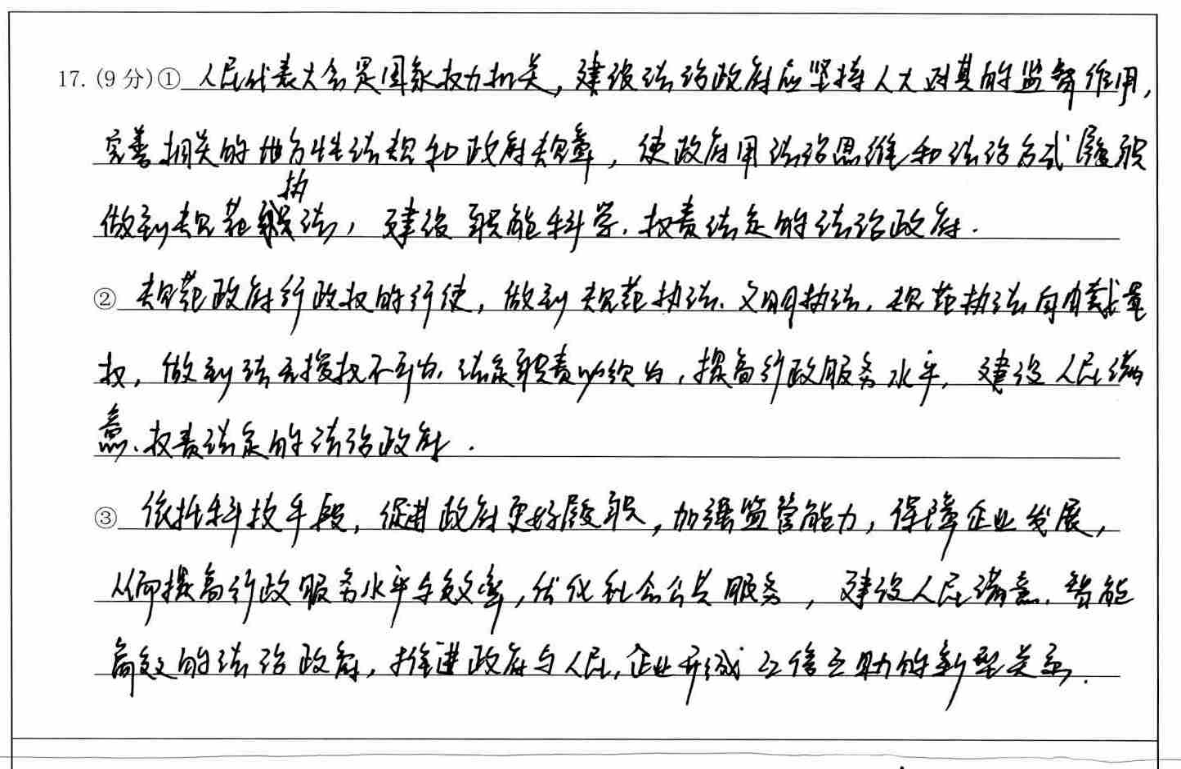 17. (9分)① 人民代表大会是国家权力机关，建设法治政府应坚持人大对其的监督作用，
完善相关的地方性法规和政府规章，使政府用法治思维和法治方式履职
做到规范执法，建设职能科学、权责法定的法治政府．
② 规范政府行政权的行使，做到规范执法、文明执法，规范执法自由裁量
权，做到法无授权不可为、法定职责必须为，提高行政服务水平，建设人民满
意、权责法定的法治政府．
③ 依托科技手段，促进政府更好履职，加强监管能力，保障企业发展，
从而提高行政服务水平与效率，优化社会公共服务，建设人民满意、智能
高效的法治政府，推进政府与人民、企业形成互信互助的新型关系．